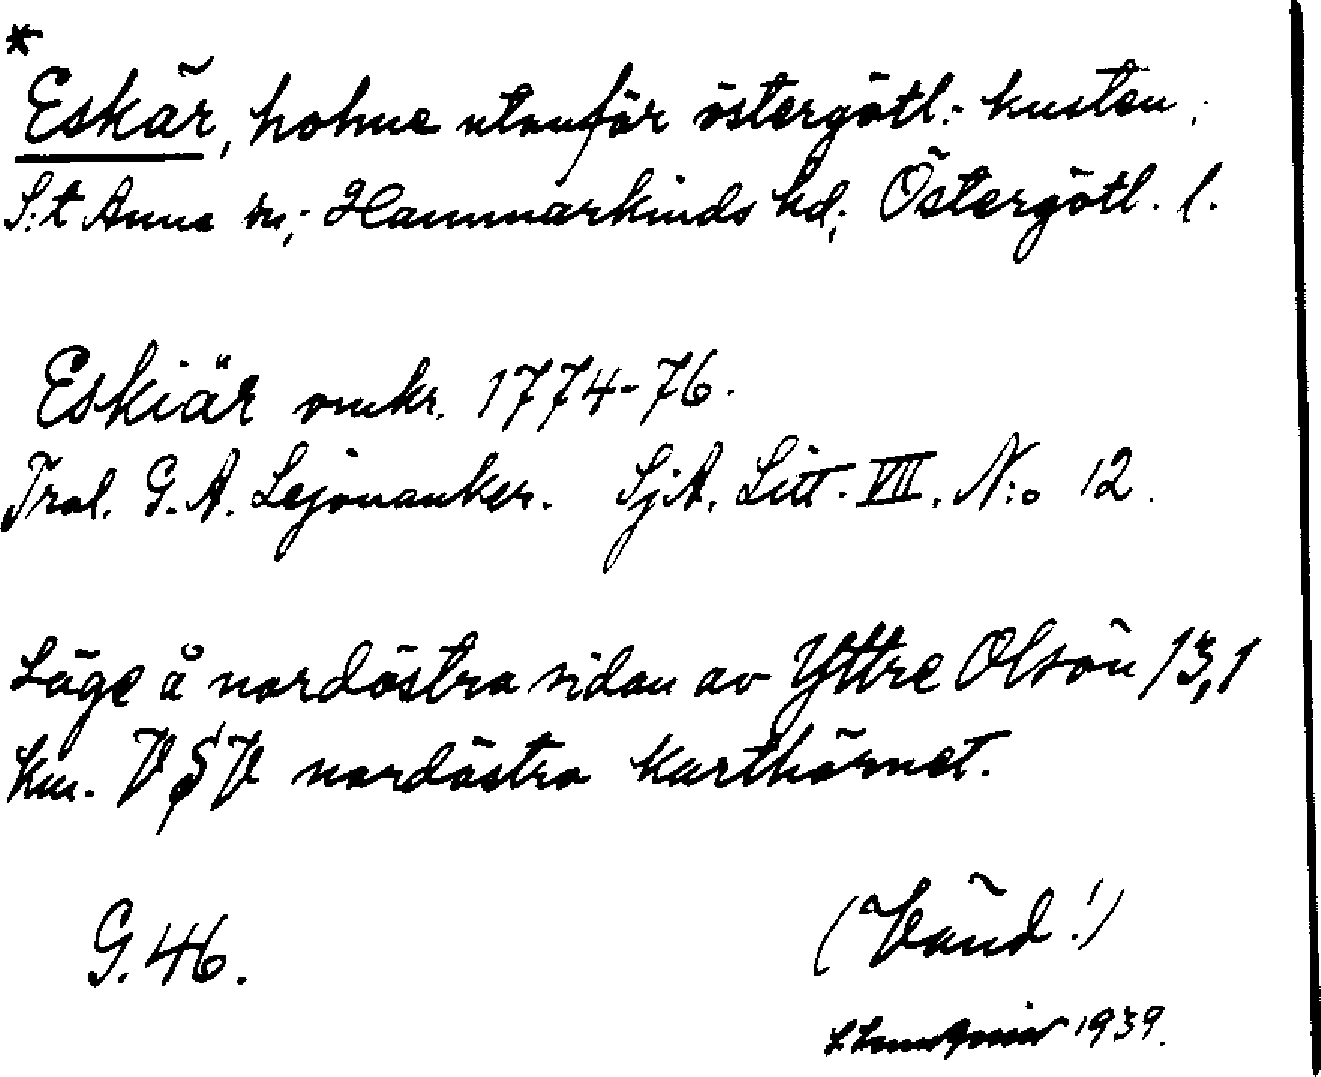 *
Eskär, holme utanför östergötl:- kusten.
S:t Anna sn; Hammarkinds hd; Östergötl. l.
Eskiär omkr. 1774-76.
Tral. G. A. Lejonanker. SjA. Litt. VII. N:o 12.
Läge å nordöstra sidan av Yttre Olsön 13,1
km. V§V nordöstra karthörnet.
G. 46.
(Vänd!)
1939.